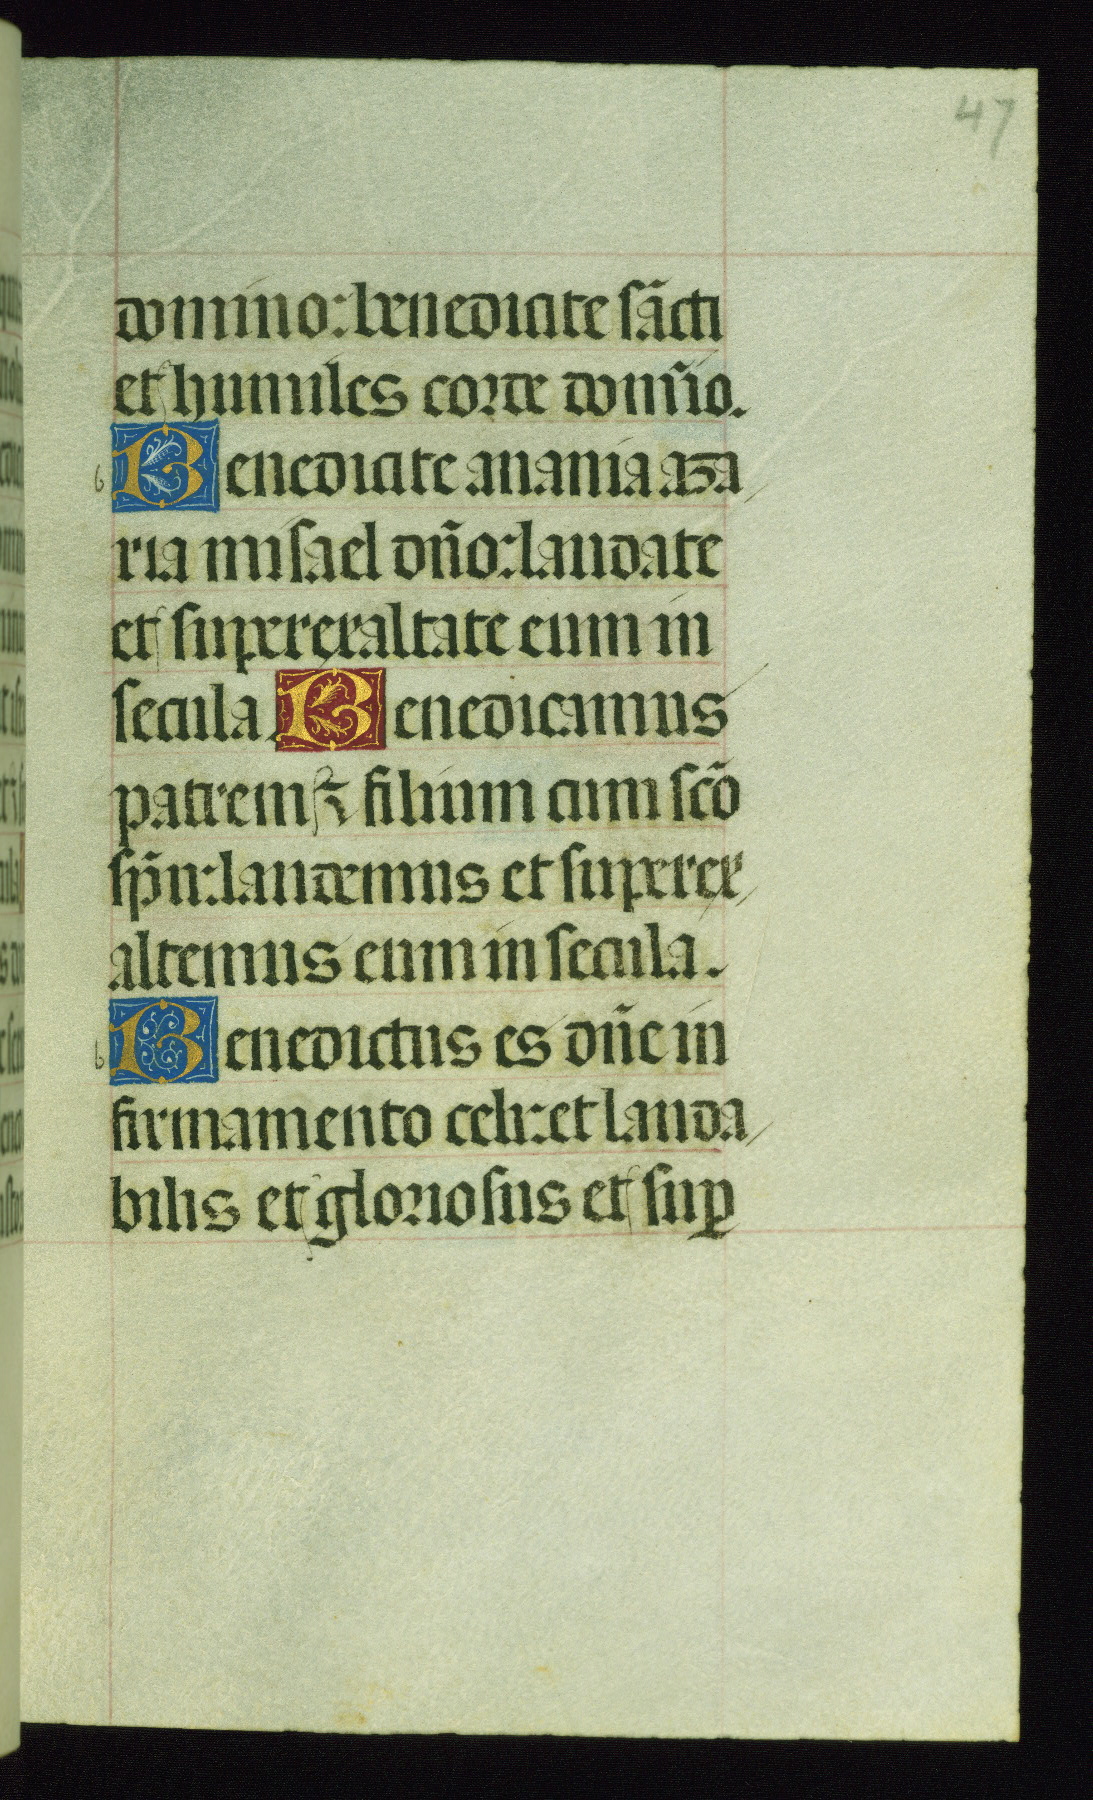 47
domino: benedicite sācti
et humiles corde domīo.
b Benedicite anania aza/
ria misael dño: laudate
et superexaltate eum in
secula. Benedicamus
patrem ⁊ filium cum scō
sp̄u: laudemus et superex/
altemus eum in secula.
b Benedictus es dñe in
firmamento celi: et lauda/
bilis et gloriosus et suꝑ